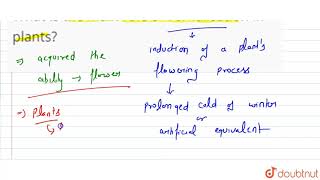 plants?
=> acquired the
ability → flower
=> Plants
induction of a plant's
flowering process
prolonged cold of winter
or
artificial equivalent
doubtnut